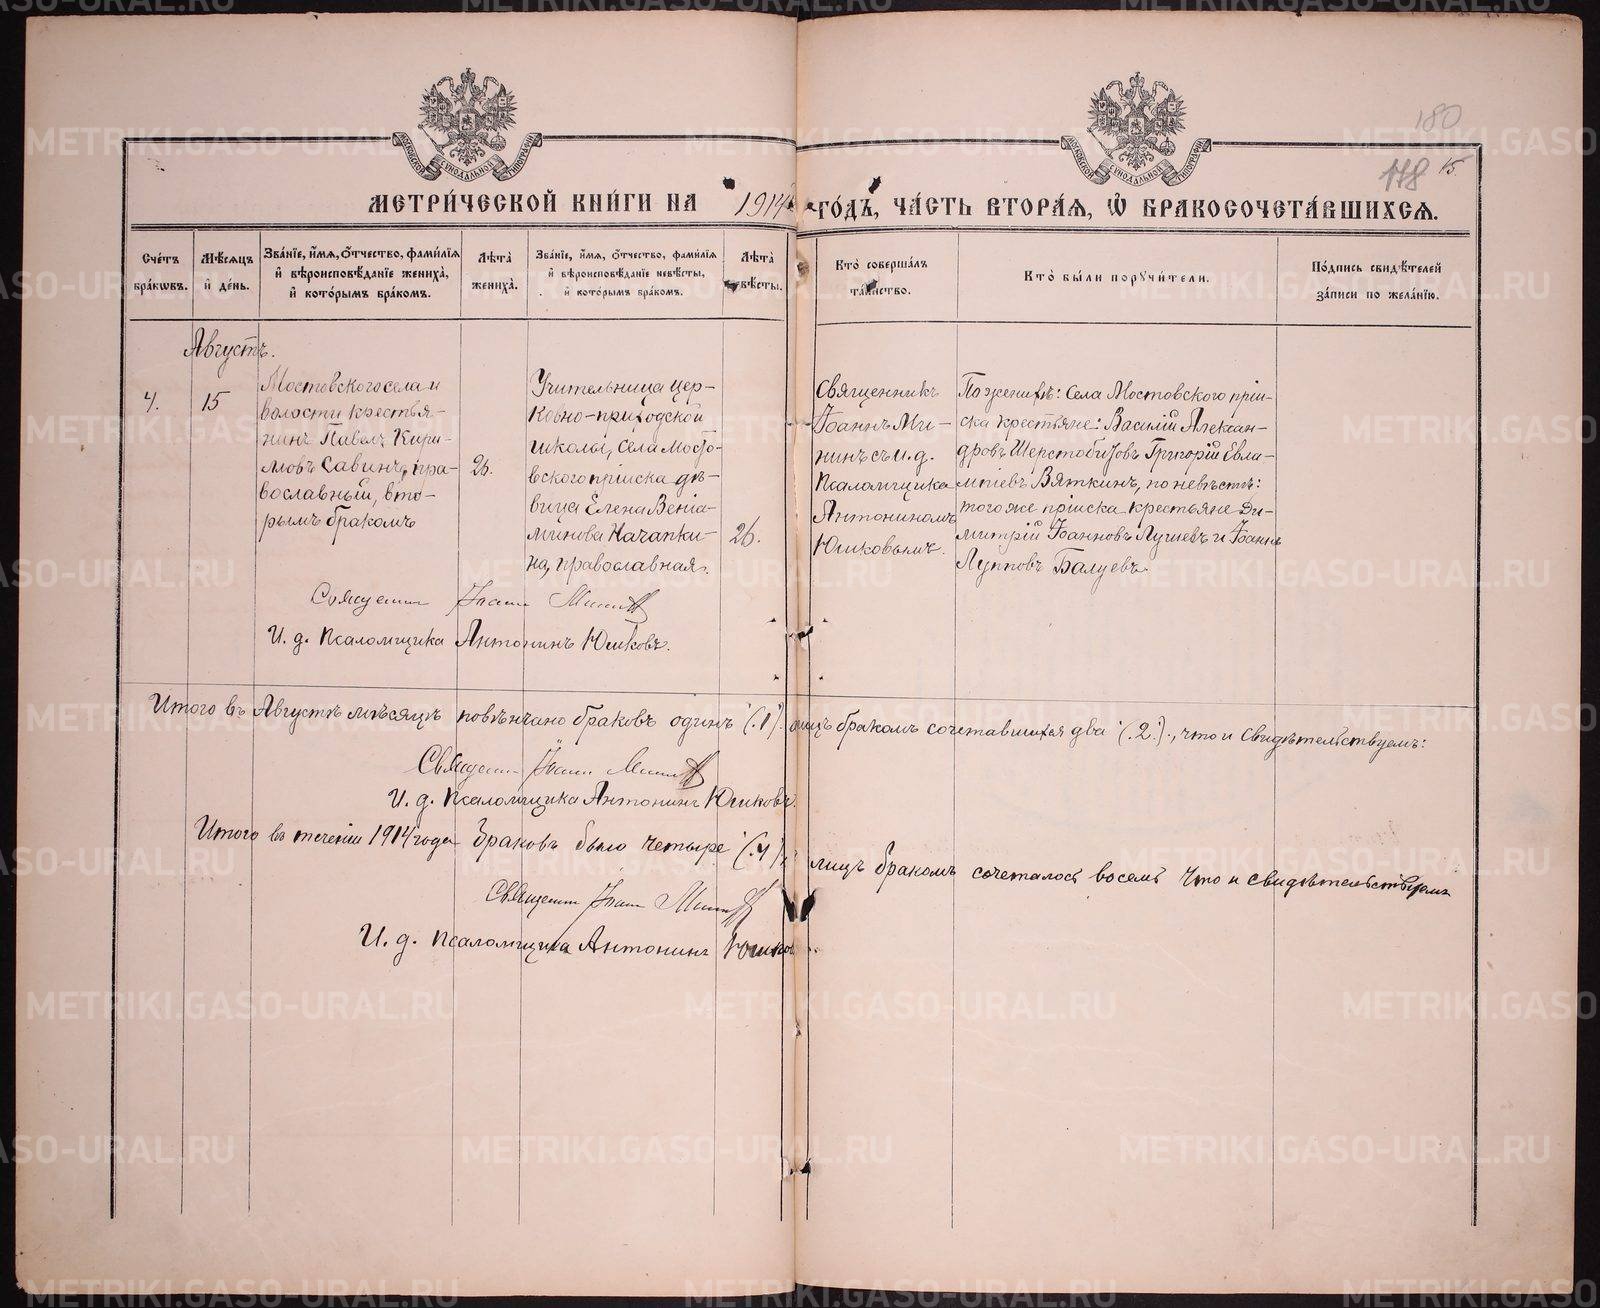 180
118 15.
МОСКОВСКОЙ СѴНОДАЛЬНОЙ ТИПОГРАФІИ
МОСКОВСКОЙ СѴНОДАЛЬНОЙ ТИПОГРАФІИ
МЕТРИ́ЧЕСКОЙ КНИ́ГИ НА 1914 ГО́ДЪ, ЧА́СТЬ ВТОРА́Я, Ѡ҆ БРАКОСОЧЕТА́ВШИХСЯ.
Сче́тъ бра́кѡвъ.
Мѣ́сяцъ и҆ де́нь.
Зва́нїе, и҆́мя, ѻ҆́тчество, фами́лїя и҆ вѣроисповѣ́данїе жениха̀, и҆ кото́рымъ бра́комъ.
Лѣ́та жениха̀.
Зва́нїе, и҆́мя, ѻ҆́тчество, фами́лїя и҆ вѣроисповѣ́данїе невѣ́сты, и҆ кото́рымъ бра́комъ.
Лѣ́та невѣ́сты.
Кто̀ соверша́лъ та́инство.
Кто̀ бы́ли порꙋчи́тели.
По́дпись свидѣ́телей за́писи по жела́нїю.
Августъ.
4.
15
Мостовского села и
волости крестья-
нинъ Павелъ Кири-
ловъ Савинъ, пра-
вославный, вто-
рымъ бракомъ
26.
Учительница цер-
ковно-приходской
школы, села Мосто-
вского пріиска дѣ-
вица Елена Веніа-
минова Начапки-
на, православная.
26.
Священникъ
Іоаннъ Ми-
нинъ съ и. д.
Псаломщика
Антониномъ
Юшковымъ.
По женихѣ: села Мостовского пріи-
ска крестьяне: Василій Алексан-
дровъ Шерстобитовъ Григорій Евла-
мпіевъ Вяткинъ, по невѣстѣ:
того же пріиска крестьяне Ди-
митрій Іоанновъ Лушевъ и Іоаннъ
Лупповъ Балуевъ.
Священникъ Іоаннъ Мининъ
И. д. Псаломщика Антонинъ Юшковъ.
Итого въ Августѣ мѣсяцѣ повѣнчано браковъ одинъ (.1.) лицъ бракомъ сочетавшихся два (.2.)., что и свидѣтельствуемъ:
Священникъ Іоаннъ Мининъ
И. д. Псаломщика Антонинъ Юшковъ.
Итого въ теченіи 1914 года браковъ было четыре (.4.), лицъ бракомъ сочеталось восемь Что и свидѣтельствуемъ
Священникъ Іоаннъ Мининъ
И. д. Псаломщика Антонинъ Юшковъ
METRIKI.GASO-URAL.RU